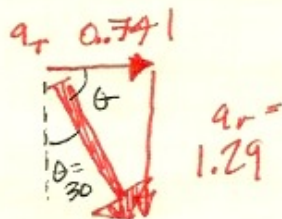 a_r 0.741
θ
θ=
30
a_r =
1.29